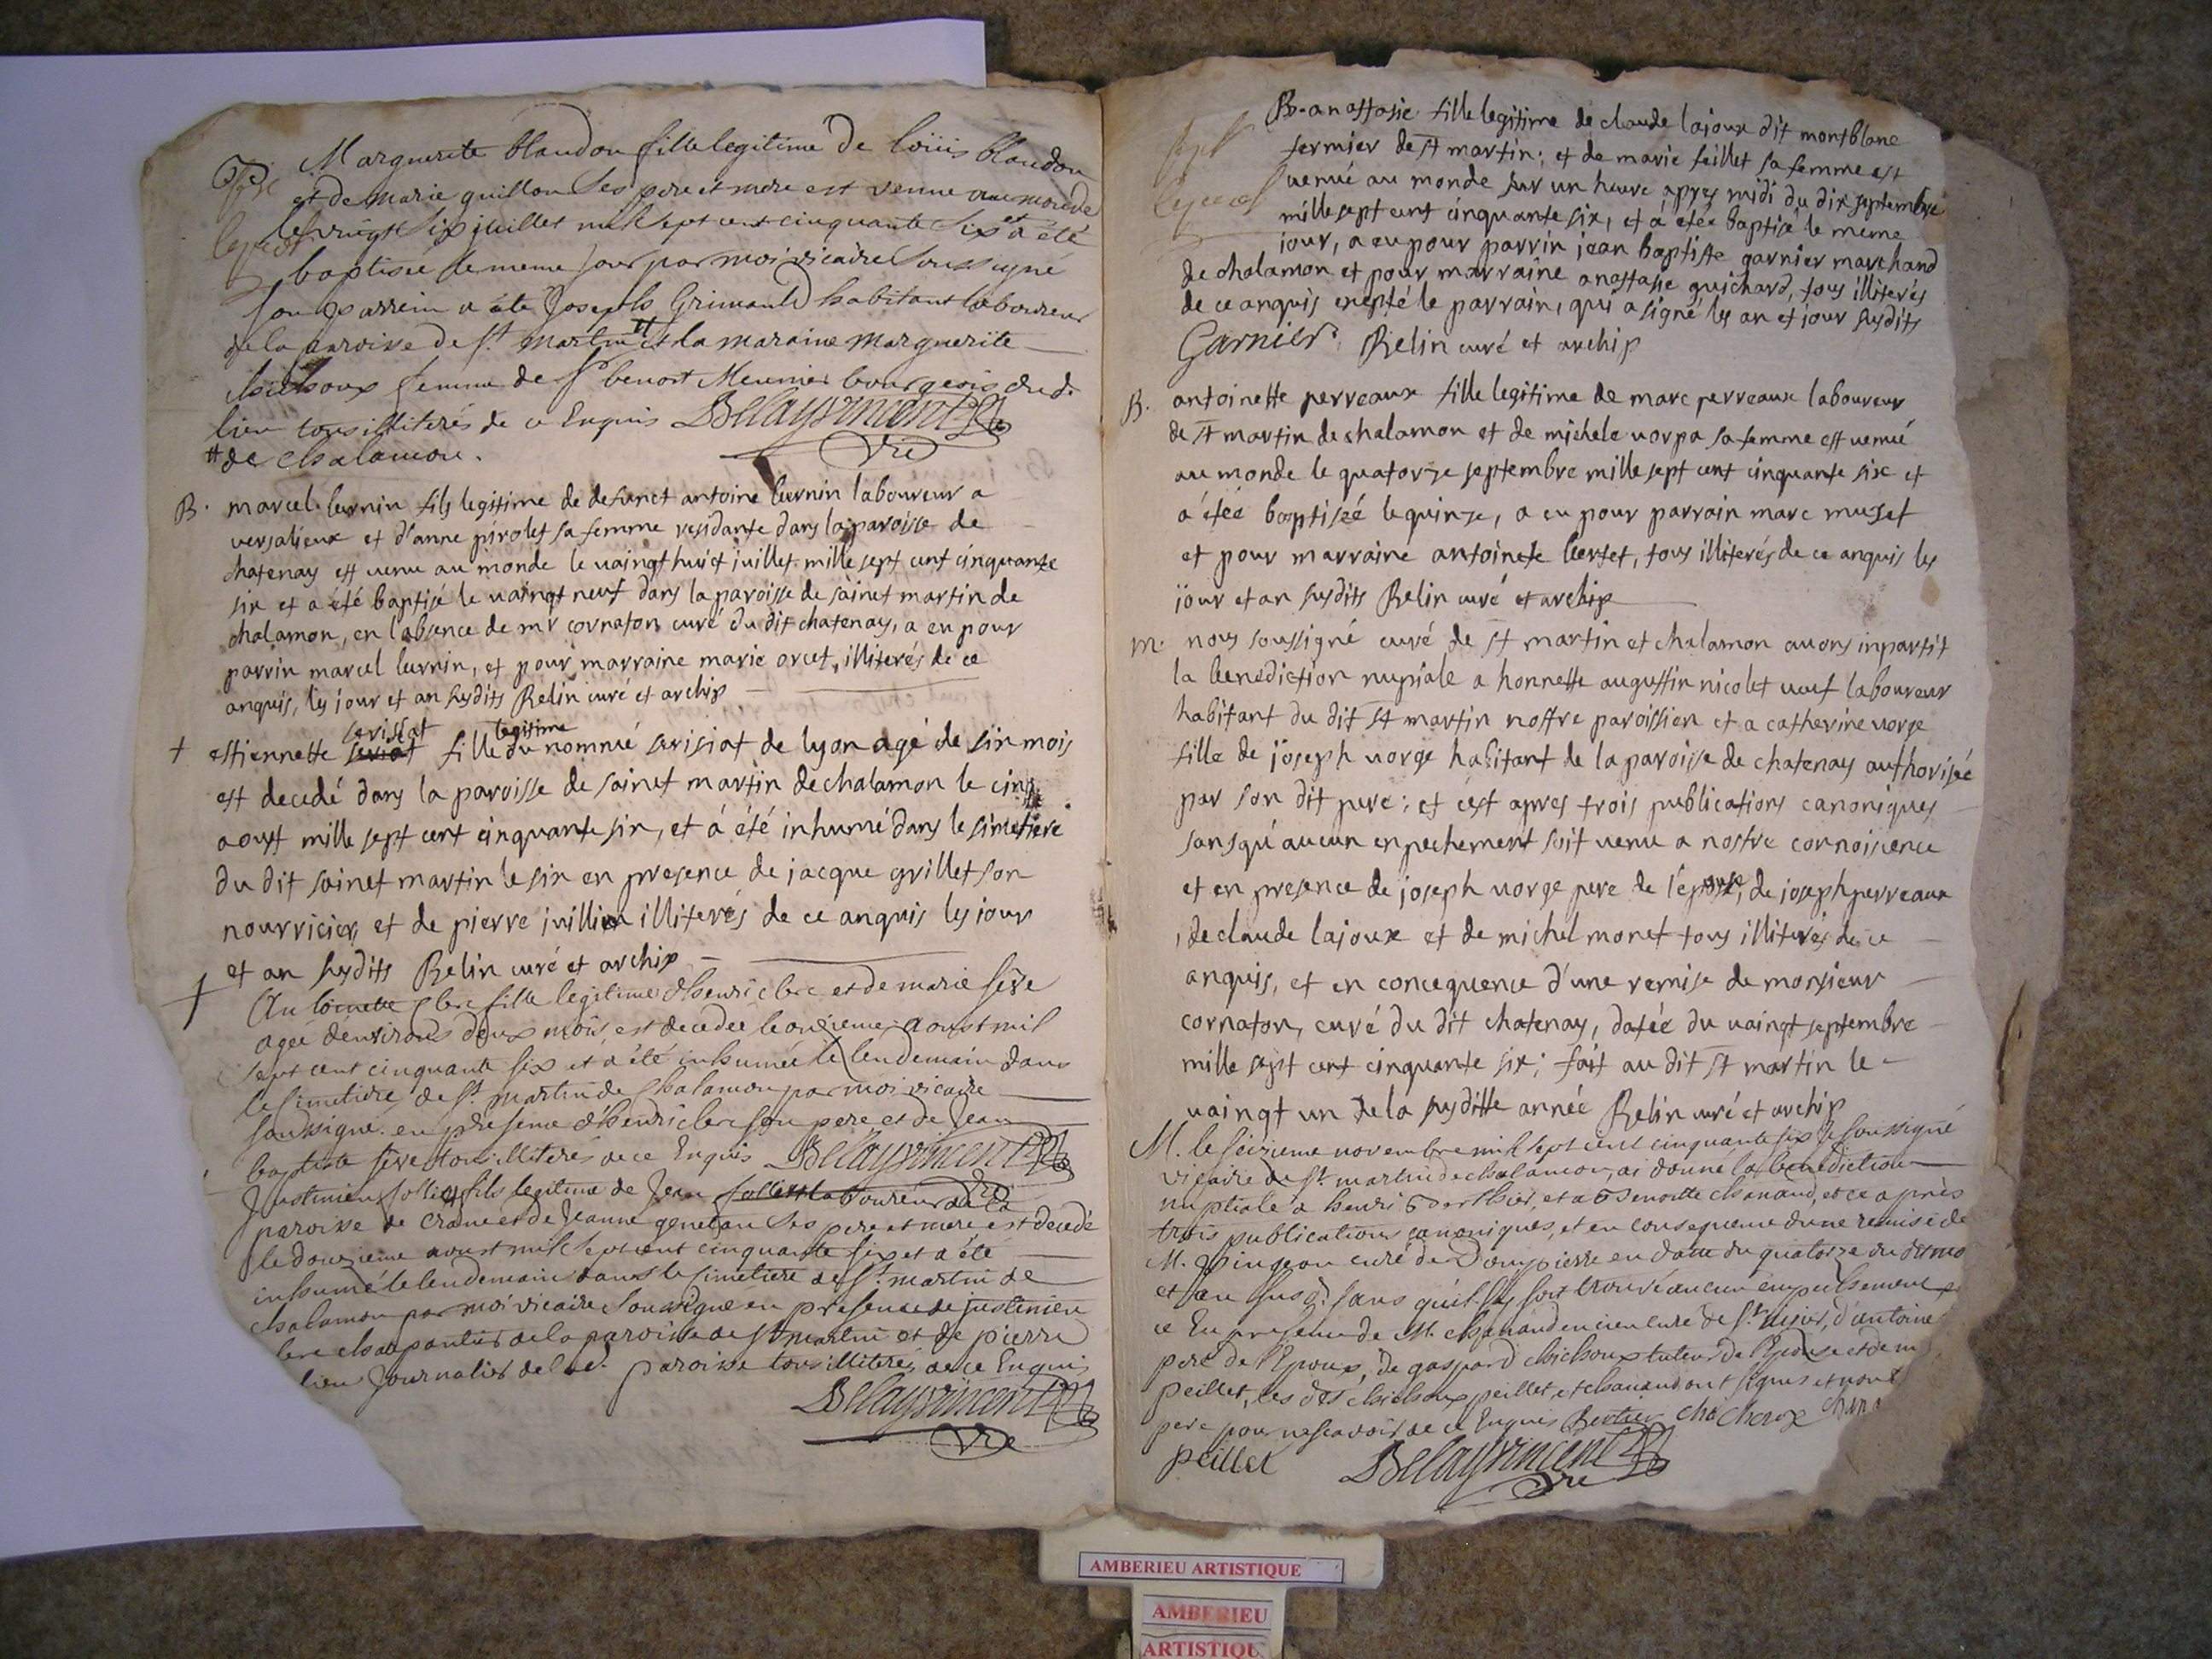 Marguerite blandon fille legitime De loüis blandon
et de Marie guillon Ses pere et mere est venue au monde
le vingt six juillet mil sept cent cinquante Six et a été
baptisée le meme jour par moi vicaire Soussigné
son parrein a été Joseph Grimauld habitant laboureur
de la paroise de St. martin # et la maraine Marguerite
femme de Sr benoit Meunier bourgeois dud.
lieu tous illiterés de ce Enquis Delayvincent
vre
# de chalamon.
B. marcel bernin fils legitime de defunct antoine bernin laboureur a
versalieux et d'anne pirolet sa femme residante dans la paroisse de
chatenay est venu au monde le vaingt huict juillet mille sept cent cinquante
six et a été baptisé le vaingt neuf dans la paroisse de sainct martin de
chalamon, en l'absence de mr cornaton curé du dit chatenay, a eu pour
parrin marcel bernin, et pour marraine marie orcet, illiterés de ce
anquis, les jour et an susdits Relin curé et archip
serisiat legitime
† estiennette seriat fille du nommé serisiat de lyon agé de six mois
est decedé dans la paroisse de sainct martin de chalamon le cinq
aoust mille sept cent cinquante six, et á été inhumé dans le simetiere
du dit sainct martin le six en presence de jacque grillet son
nourricier et de pierre juillien illiterés de ce anquis les jour
et an susdits Relin curé et archip
† Antoinette clerc fille legitime d'henri clerc et de marie seve
agée d'environs deux mois est decedée le onzieme aoust mil
sept cent cinquante six et a été inhumée le lendemain dans
le simetiere de St. martin de chalamon par moi vicaire
soussigné en presence d'henri clerc son pere et de Jean
baptiste seve tous illiterés de ce Enquis Delayvincent
vre
Justinien folliet fils legitime de Jean follet laboureur de la
paroisse de crane et de Jeanne genetan Ses pere et mere est decedé
le douzieme aoust mil sept cent cinquante six et a été
inhumé le lendemain dans le simetiere de St. martin de
chalamon par moi vicaire Soussigné en presence de justinien
clerc chapantier de la paroisse de St martin et de pierre
Journalier de lad. paroisse tous illiterés de ce Enquis
Delayvincent
vre
B. anastasie fille legitime de claude lajoux dit montblanc
fermier de st martin; et de marie feillet sa femme est
venué au monde sur un heure apres midi du dix septembre
mille sept cent cinquante six, et á etée baptisé le meme
jour, a eu pour parrin jean baptiste garnier marchand
de chalamon et pour marraine anastasie guichard, tous illiterés
de ce anquis exepté le parrain, qui a signé les an et jour susdits
Garnier Relin curé et archip
B. antoinette perreaux fille legitime de marc perreaux laboureur
de st martin de chalamon et de michele vorpa sa femme est venué
au monde le quatorze septembre mille sept cent cinquante six et
a étéé baptiséé le quinze, a eu pour parrain marc muset
et pour marraine antoinete bertet, tous illiterés de ce anquis les
jour et an susdits Relin curé et archip
m. nous soussigné curé de st martin et chalamon avons inpartit
la benediction nupiale a honnette augustin nicolet veuf laboureur
habitant du dit st martin nostre paroissien et a catherine vorge
fille de joseph vorge habitant de la paroisse de chatenay authorisée
par son dit pere; et c'est apres trois publications canoniques
sans qu'aucun enpechement soit venu a nostre connoisence
et en presence de joseph vorge pere de l'épouse, de joseph perreaux
, de claude lajoux et de michel monet tous illiterés de ce
anquis, et en concequence d'une remise de monsieur
cornaton, curé du dit chatenay, datée du vaingt septembre
mille sept cent cinquante six; fait au dit st martin le
vaingt un de la susditte année Relin curé et archip
M. le seizieme novembre mil sept cent cinquante six je soussigné
vicaire de St. martin de chalamon, ai donné la benediction
nuptiale a henri Berthier, et a benoitte chanaud, et ce après
trois publications canoniques, et en consequence d'une remise de
M. pingeon curé de Dompierre en datte du quatorze du d. mo
et an susd. sans qu'il se soit trouvé aucun empechement
ce En presence de M. chanaud ancien curé de St. d'antoine
pere de l'Epoux, de gaspard chichoux tuteur de l'Epouse et de
peillet, les dts chichoux peillet et chanaud ont signés et non
pere pour ne scavoir de ce Enquis Bertier chicheroux chana
peillet Delayvincent
vre
AMBERIEU ARTISTIQUE
AMBERIEU
ARTISTIQU